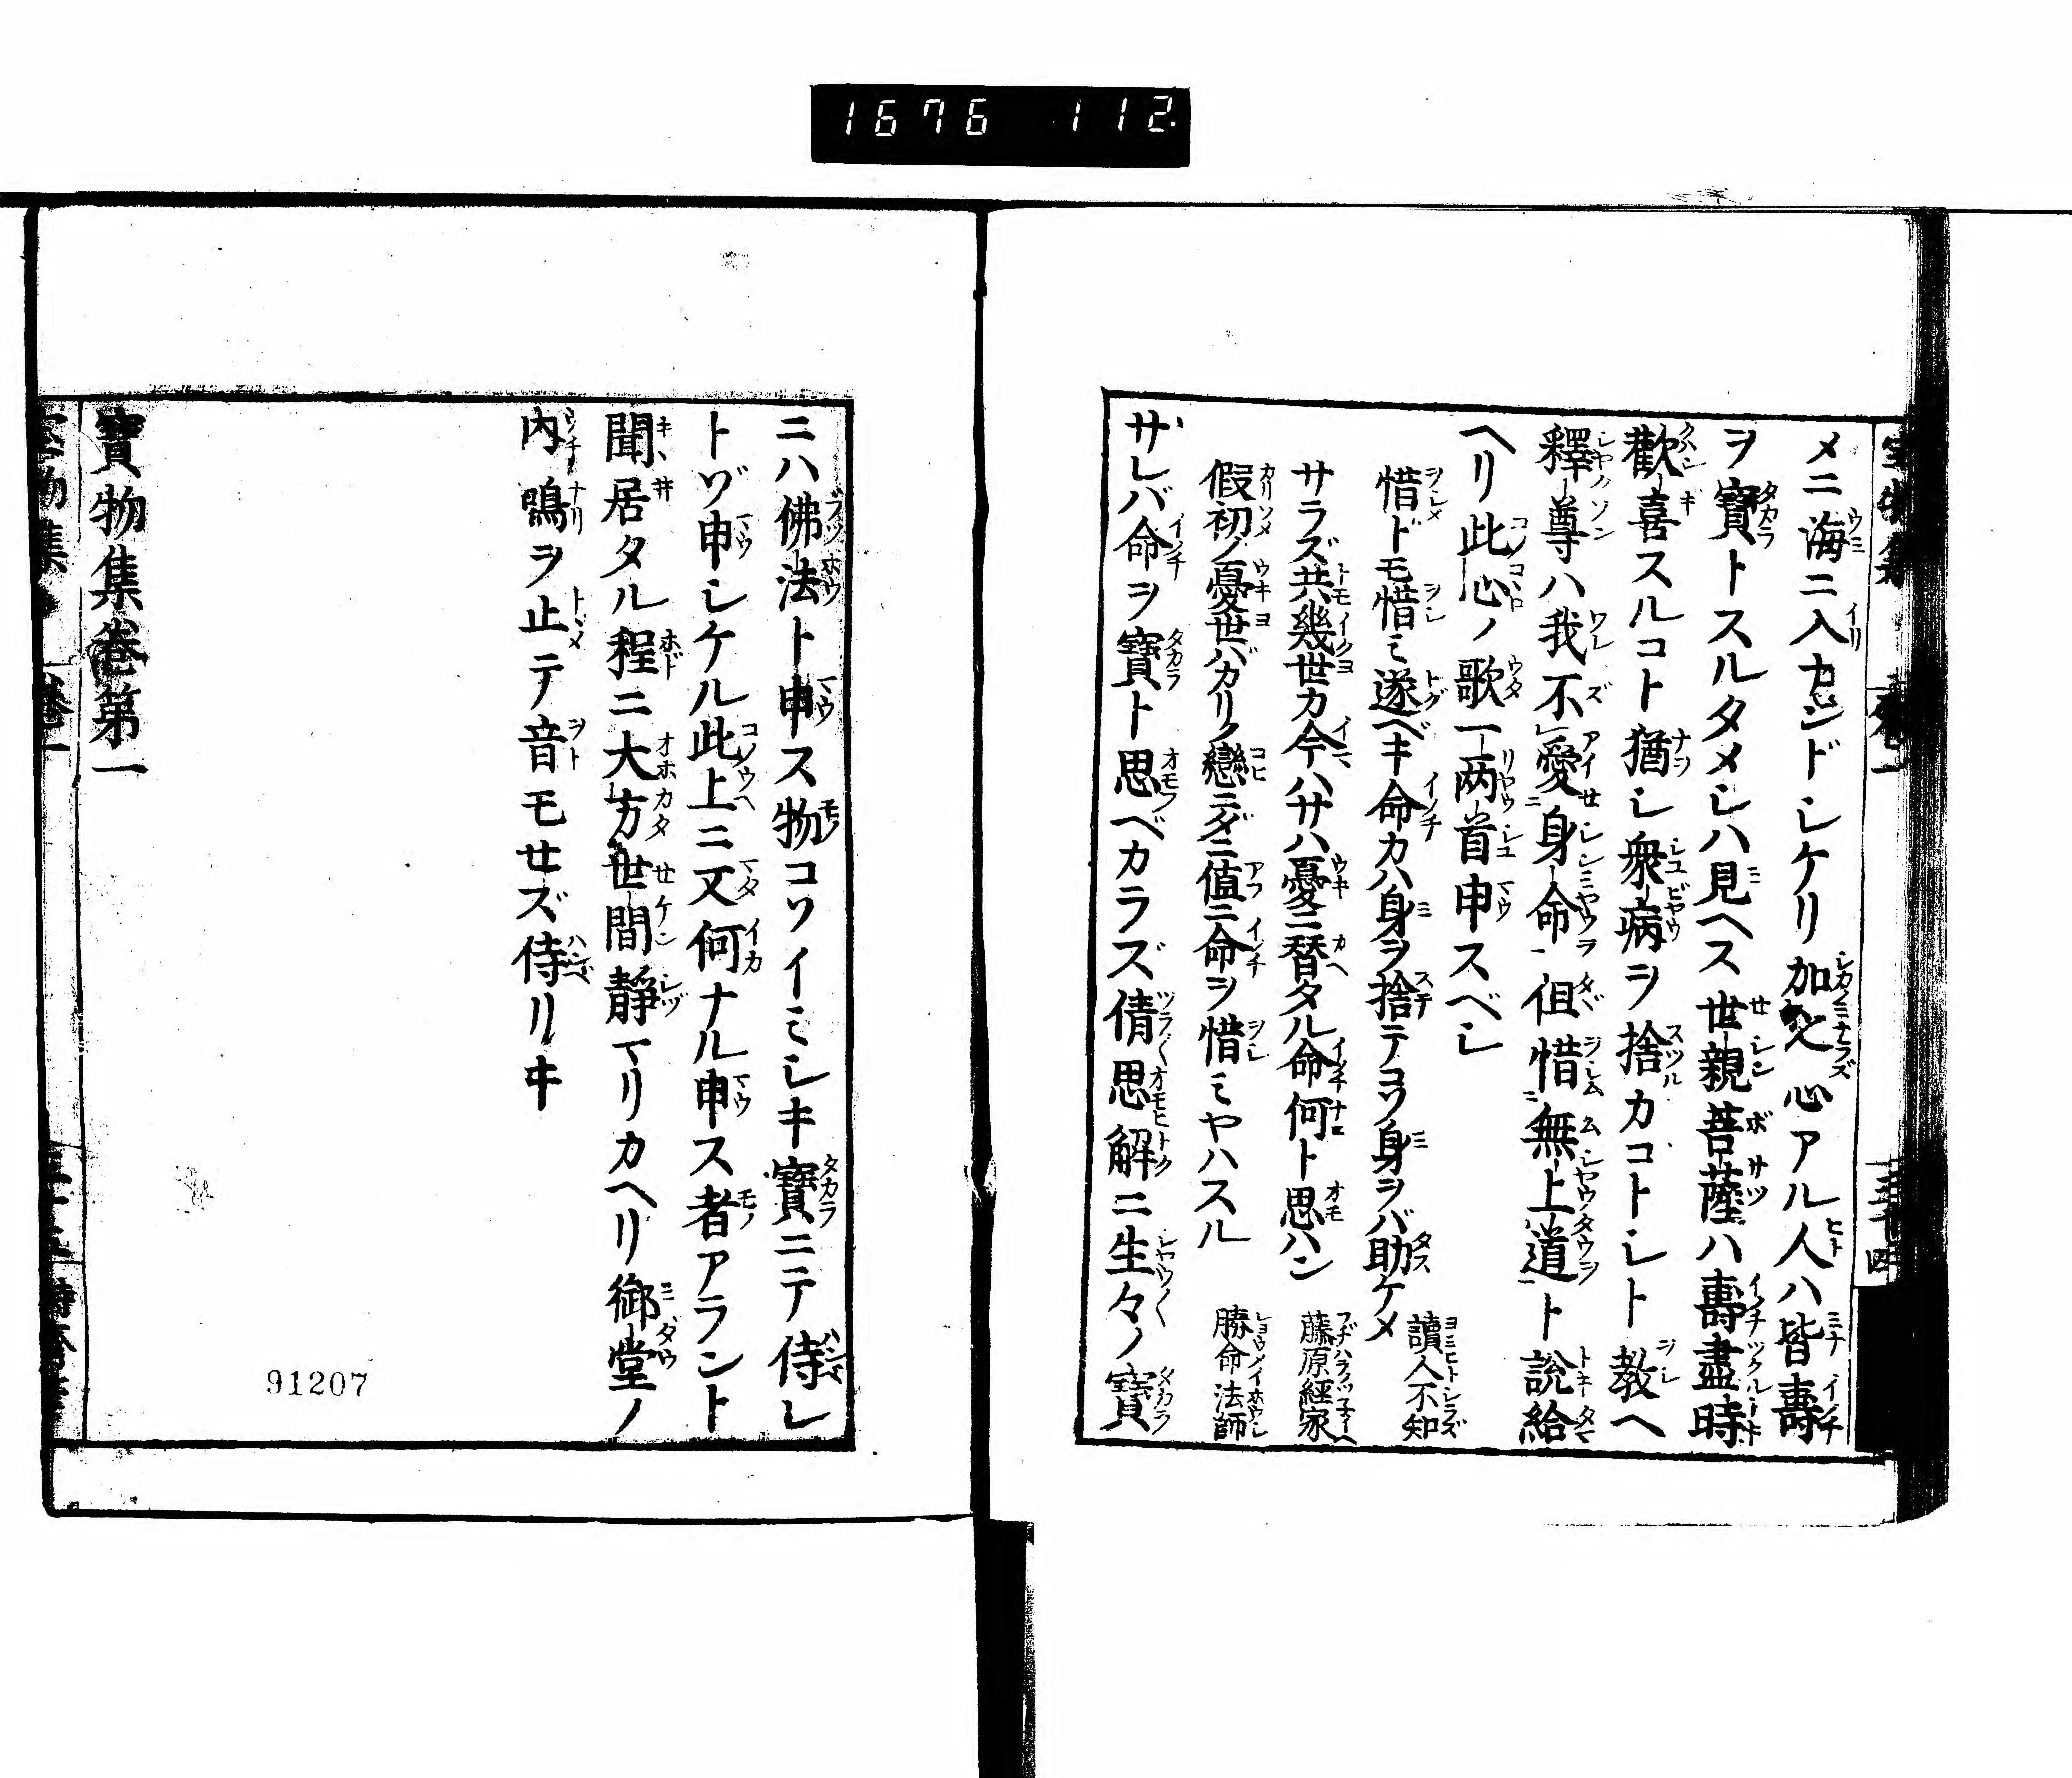 1676 112
メニ海ニ入カンドシケリ加之心アル人ハ皆壽
ヲ寶トスルタメシハ見ヘス世親菩薩ハ壽盡時
歡喜スルコト猶シ衆病ヲ捨カコトシト教ヘ
釋尊ハ我不愛身命但惜無上道ト説給
ヘリ此心ノ歌一兩首申スベシ
惜ドモ惜ミ遂ベキ命カハ身ヲ捨テコソ身ヲバ助ケメ 讀人不知
サラズ共幾世カ今ハサハ憂ニ替タル命何ト思ハン 藤原經家
假初ノ憂世バカリノ戀ニダニ値ニ命ヲ惜ミヤハスル 勝命法師
サレバ命ヲ寶ト思ベカラズ倩思解ニ生々ノ寶
ニハ佛法ト申ス物コソイミシキ寶ニテ侍レ
トゾ申シケル此上ニ又何ナル申ス者アラント
聞居タル程ニ大方世間靜マリカヘリ御堂ノ
内鳴ヲ止テ音モせズ侍リキ
寶物集卷第一
91207